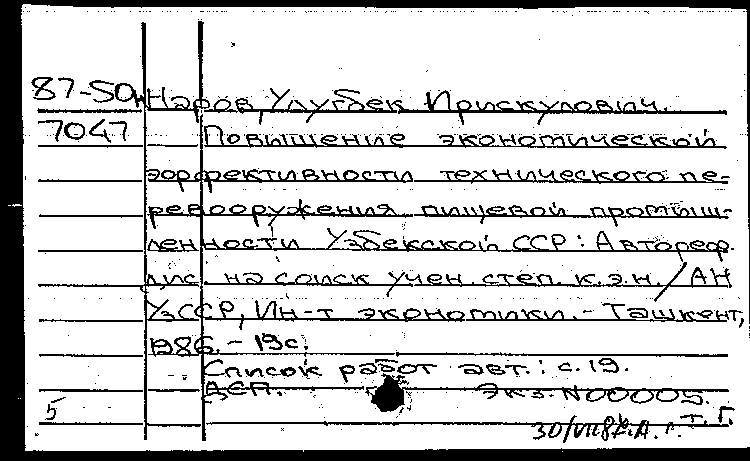 87-50 Наров, Улугбек Прискулович.
7047 Повышение экономической
эффективности технического пе-
ревооружения пищевой промыш-
ленности Узбекской ССР: Автореф.
дис. на соиск учен. степ. к.э.н. / АН
УзССР, Ин-т экономики. - Ташкент,
1986. - 19с.
Список работ авт.: с. 19.
ДСП. Экз. N00005.
5
т. Г.